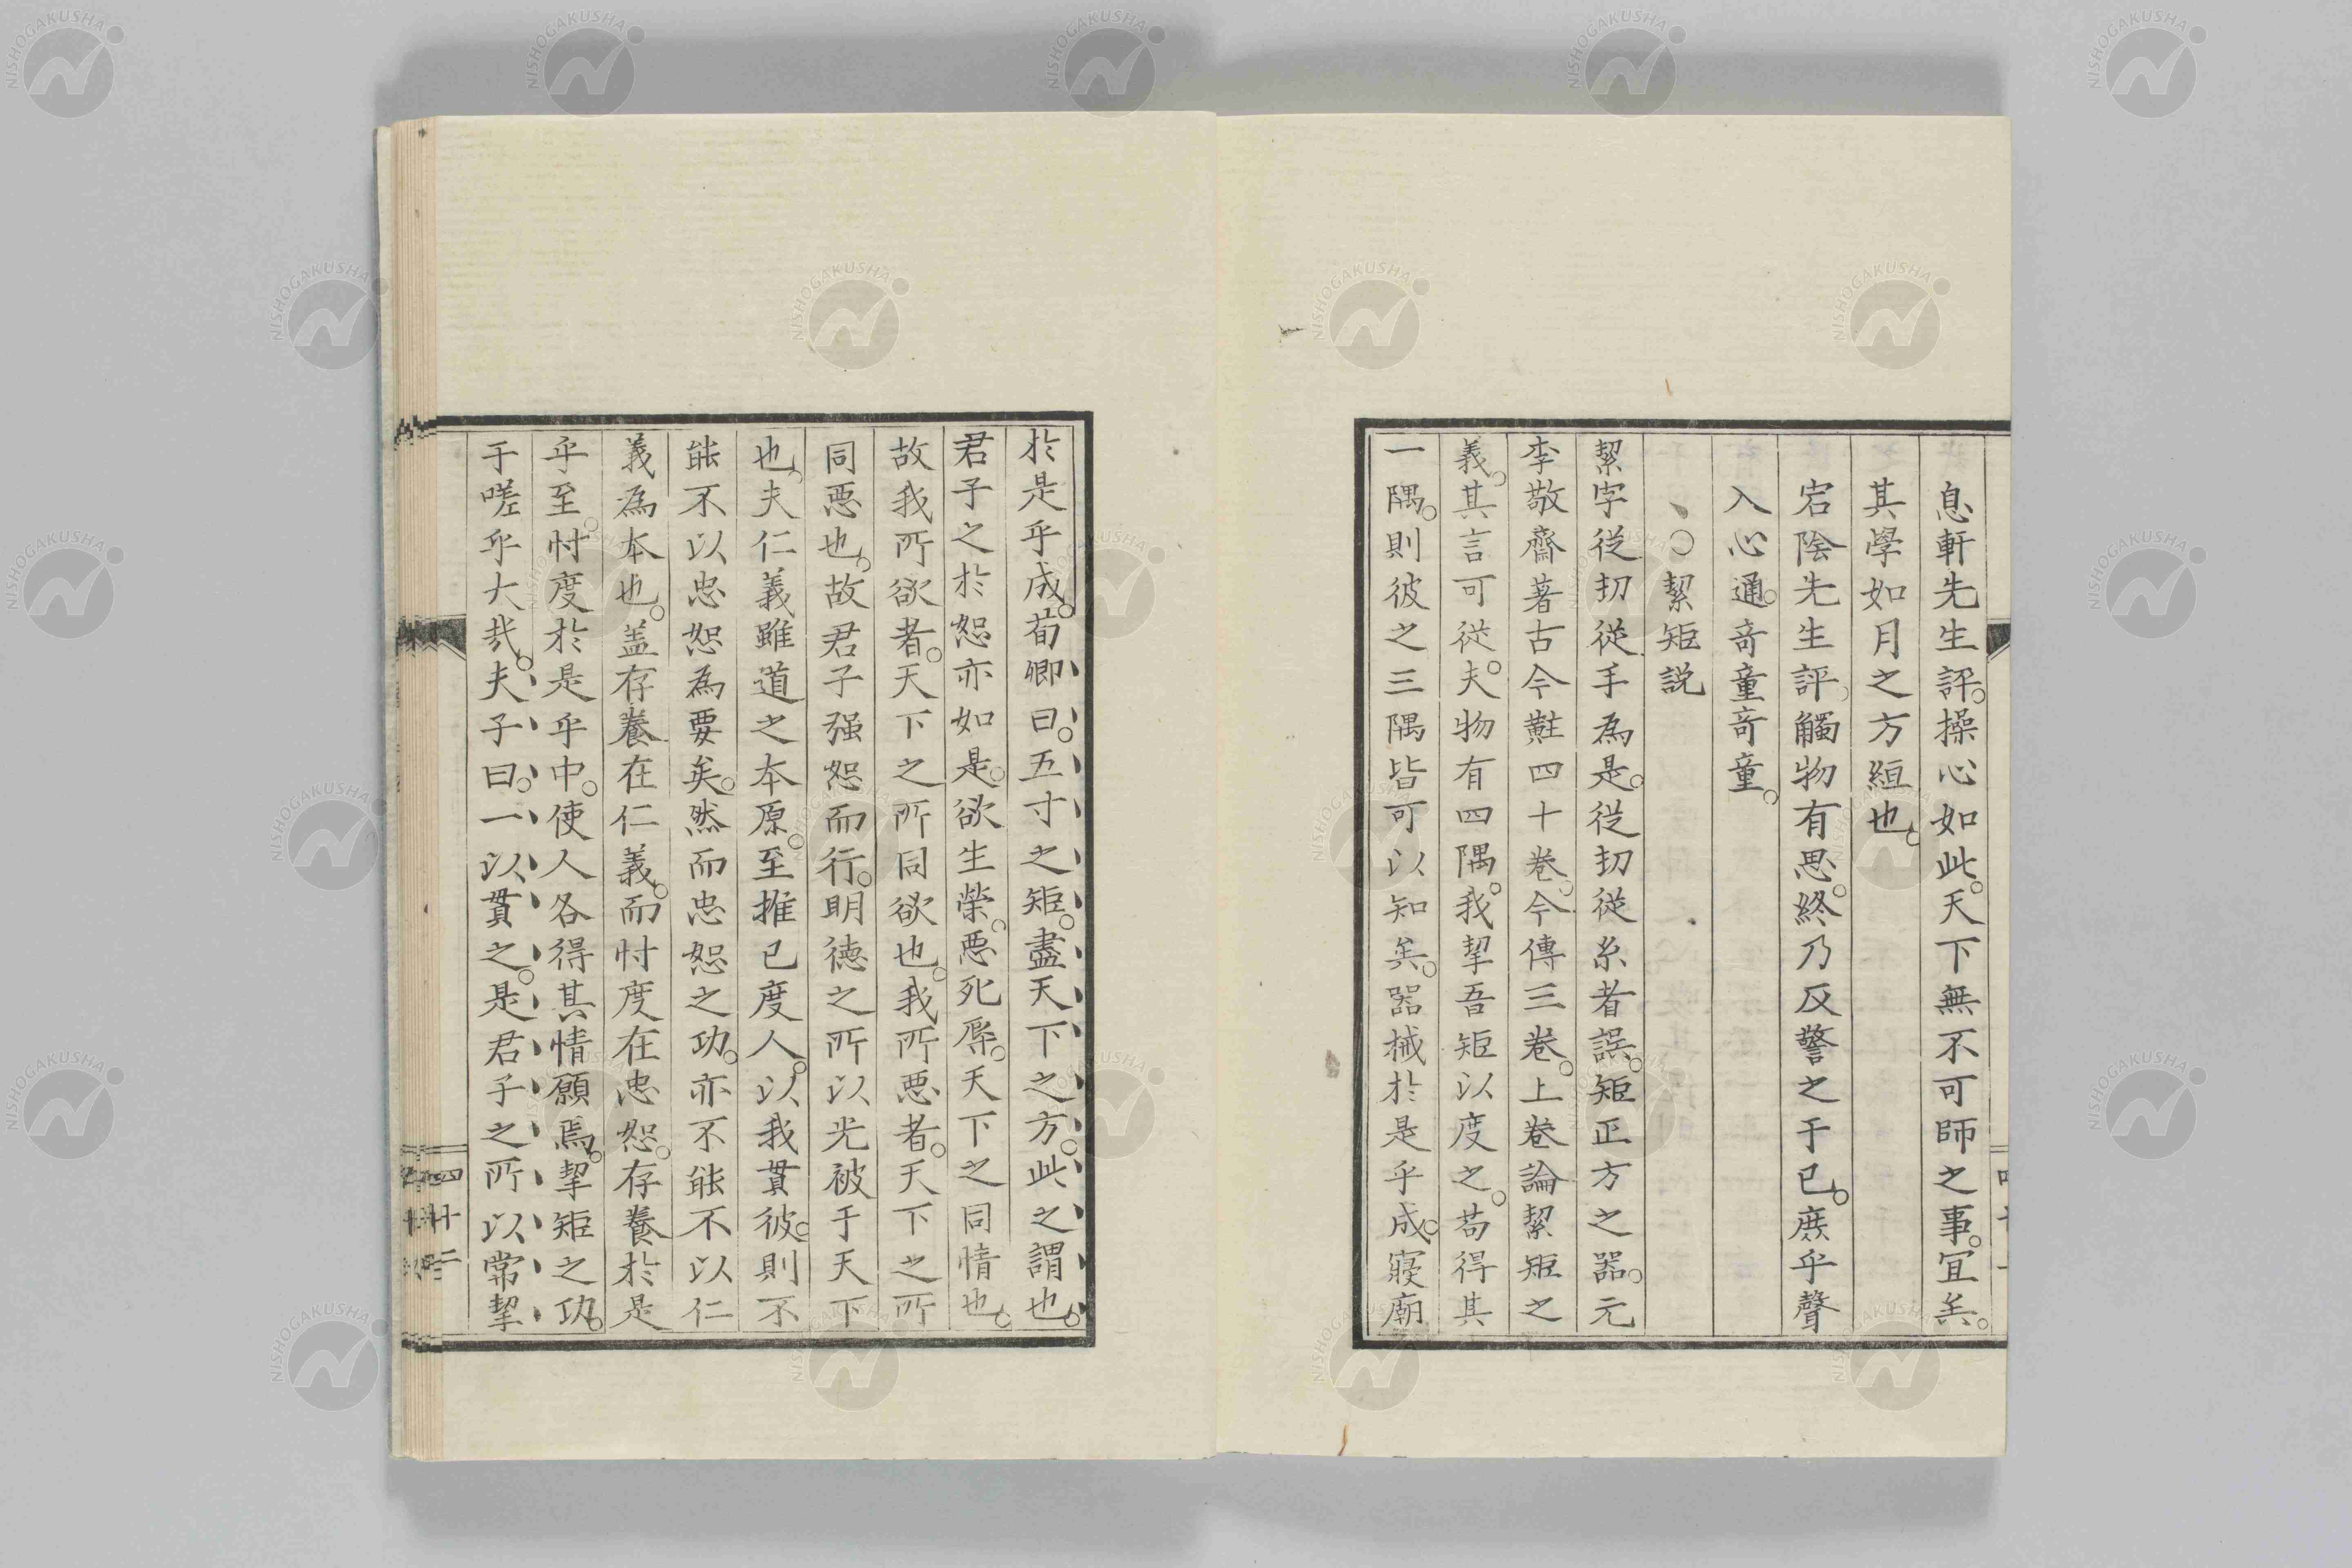 息軒先生評。操心如此。天下無不可師之事。宜矣。
其學如月之方絚也。
宕陰先生評。觸物有思。終乃反警之于已。庶乎聲
入心通。奇童奇童。
、○絜矩説
絜字從㓞從手為是。從㓞從糸者誤。矩正方之器。元
李敬齋著古今黈四十卷。今傳三卷。上卷論絜矩之
義。其言可從。夫物有四隅。我挈吾矩以度之。苟得其
一隅。則彼之三隅皆可以知矣。器械於是乎成。寢廟
於是乎成。荀卿曰。五寸之矩。盡天下之方。此之謂也。
君子之於恕亦如是。欲生榮。惡死辱。天下之同情也。
故我所欲者。天下之所同欲也。我所惡者。天下之所
同惡也。故君子强恕而行。明德之所以光被于天下
也。夫仁義雖道之本原。至推已度人。以我貫彼。則不
能不以忠恕為要矣。然而忠恕之功。亦不能不以仁
義為本也。盖存養在仁義。而忖度在忠恕。存養於是
乎至。忖度於是乎中。使人各得其情願焉。挈矩之功。
于嗟乎大哉。夫子曰。一以貫之。是君子之所以常挈
四十二